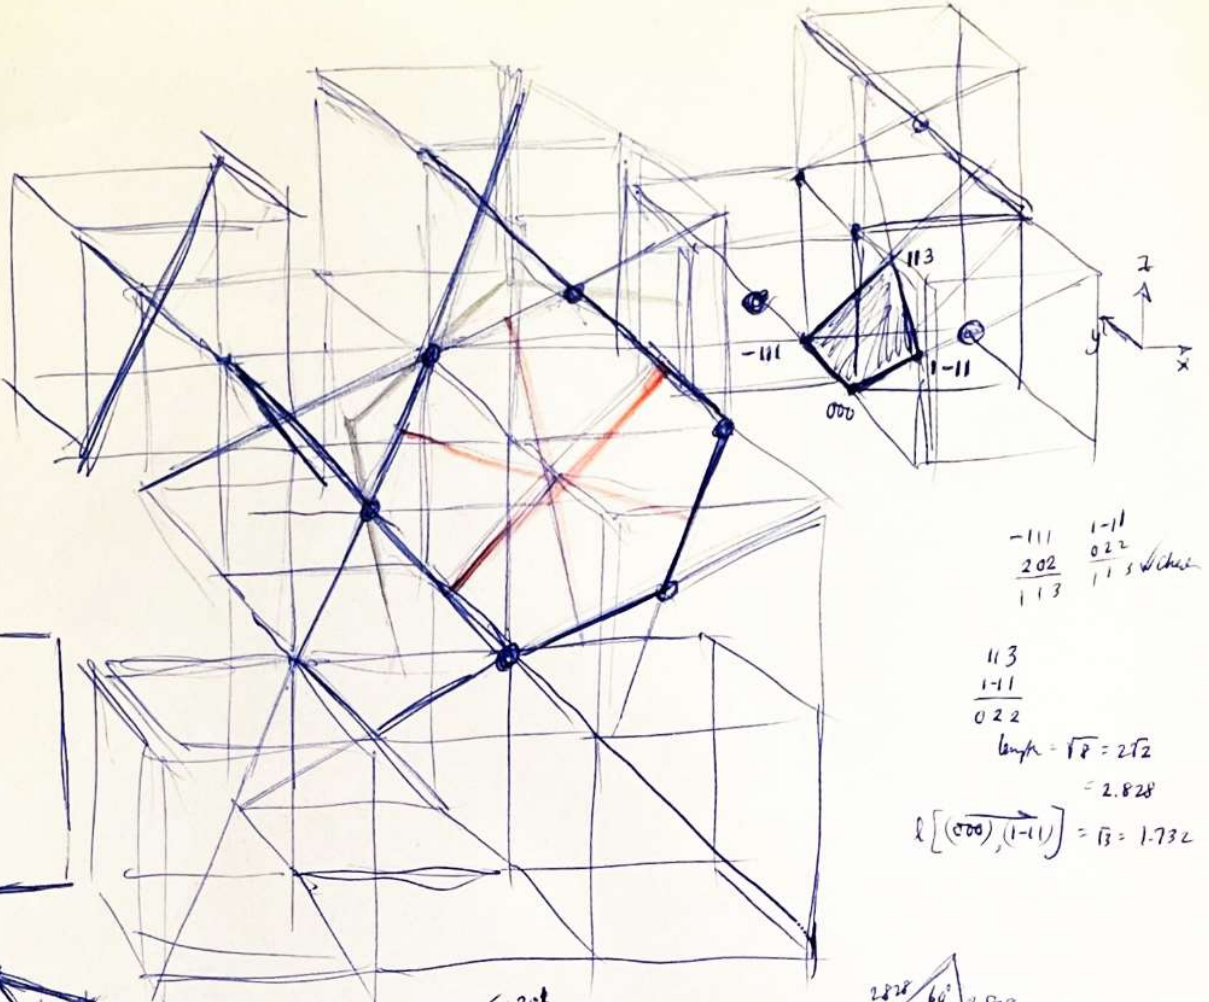 z
113
-111
1-11
y
x
000
-111
202
113
1-11
022
113
113
1-11
022
length = √8 = 2√2
= 2.828
l [(000), (1-11)] = √3 = 1.732
2828
60°